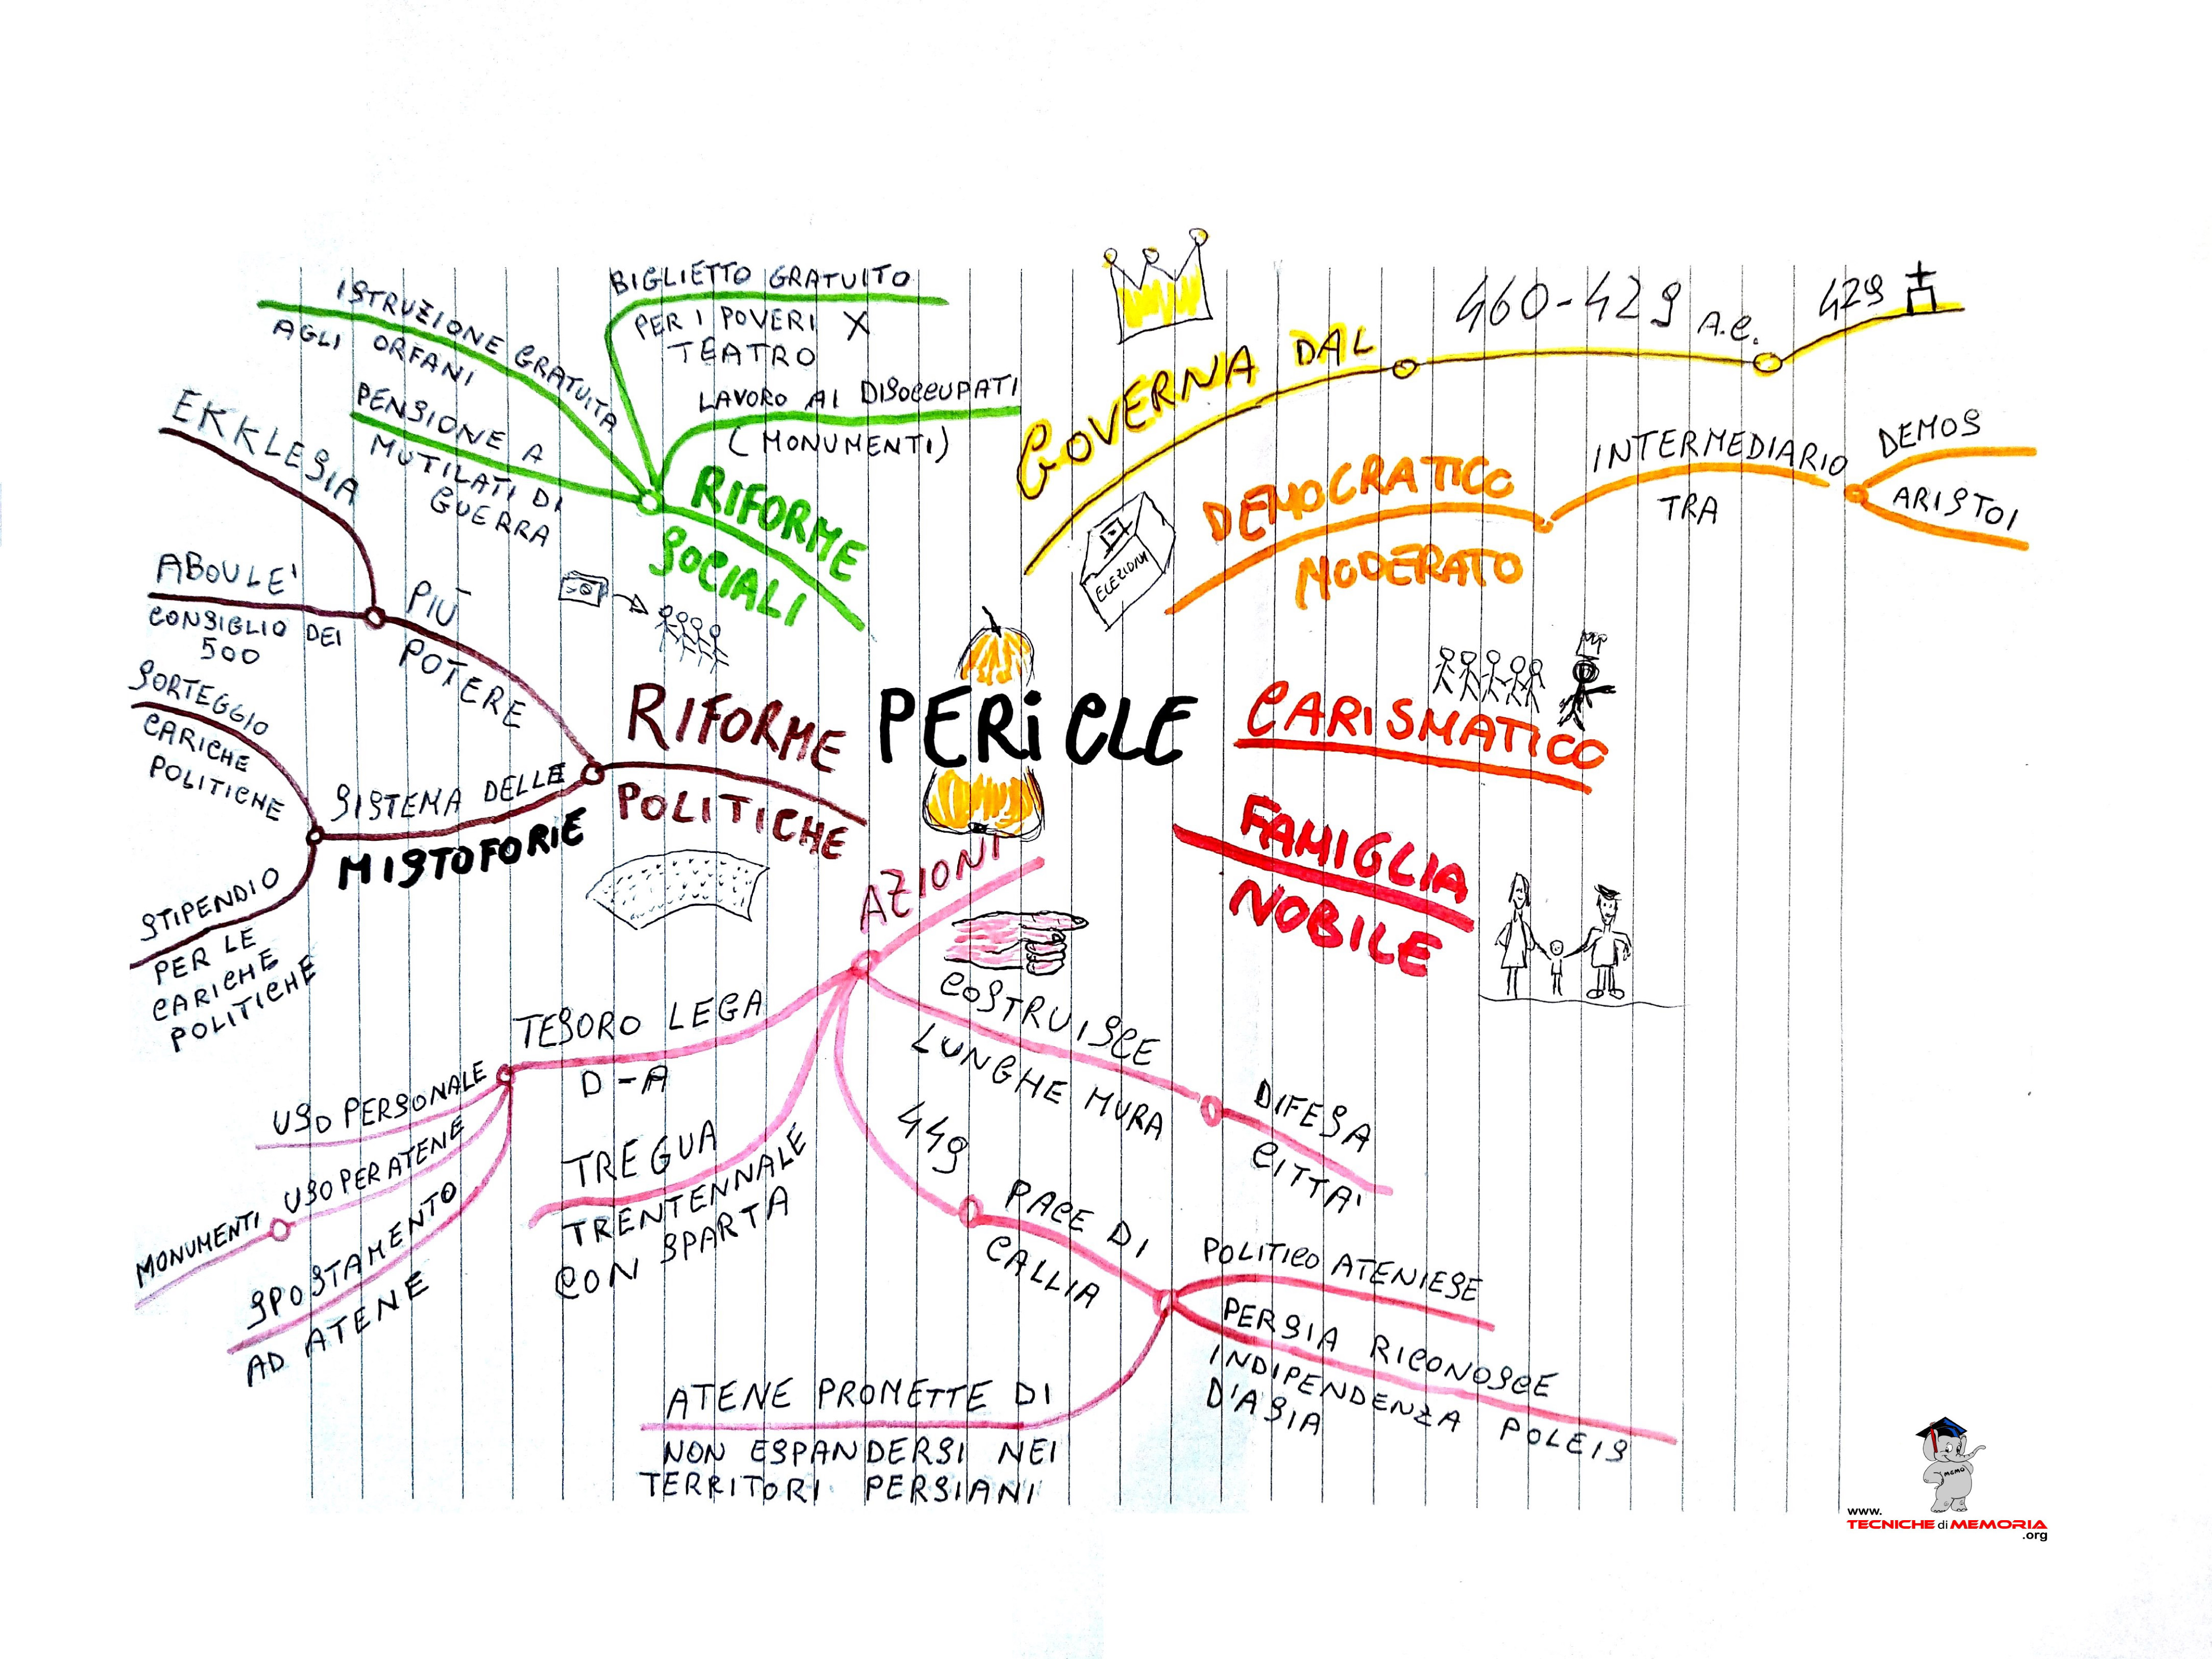 PERICLE
GOVERNA DAL
460-429 A.C.
429
DEMOCRATICO
MODERATO
INTERMEDIARIO
TRA
DEMOS
ARISTOI
ELEZIONI
CARISMATICO
FAMIGLIA
NOBILE
AZIONI
COSTRUISCE
LUNGHE MURA
DIFESA
CITTA'
449
PACE DI
CALLIA
POLITICO ATENIESE
PERSIA RICONOSCE
INDIPENDENZA POLEIS
D'ASIA
ATENE PROMETTE DI
NON ESPANDERSI NEI
TERRITORI PERSIANI
TREGUA
TRENTENNALE
CON SPARTA
TESORO LEGA
D-A
USO PERSONALE
USO PER ATENE
MONUMENTI
SPOSTAMENTO
AD ATENE
RIFORME
POLITICHE
PIÙ
POTERE
EKKLESIA
ABOULE'
CONSIGLIO DEI
500
SISTEMA DELLE
MISTOFORIE
SORTEGGIO
CARICHE
POLITICHE
STIPENDIO
PER LE
CARICHE
POLITICHE
RIFORME
SOCIALI
ISTRUZIONE GRATUITA
AGLI ORFANI
PENSIONE A
MUTILATI DI
GUERRA
BIGLIETTO GRATUITO
PER I POVERI X
TEATRO
LAVORO AI DISOCCUPATI
(MONUMENTI)
MEMO
www.
TECNICHE di MEMORIA
.org